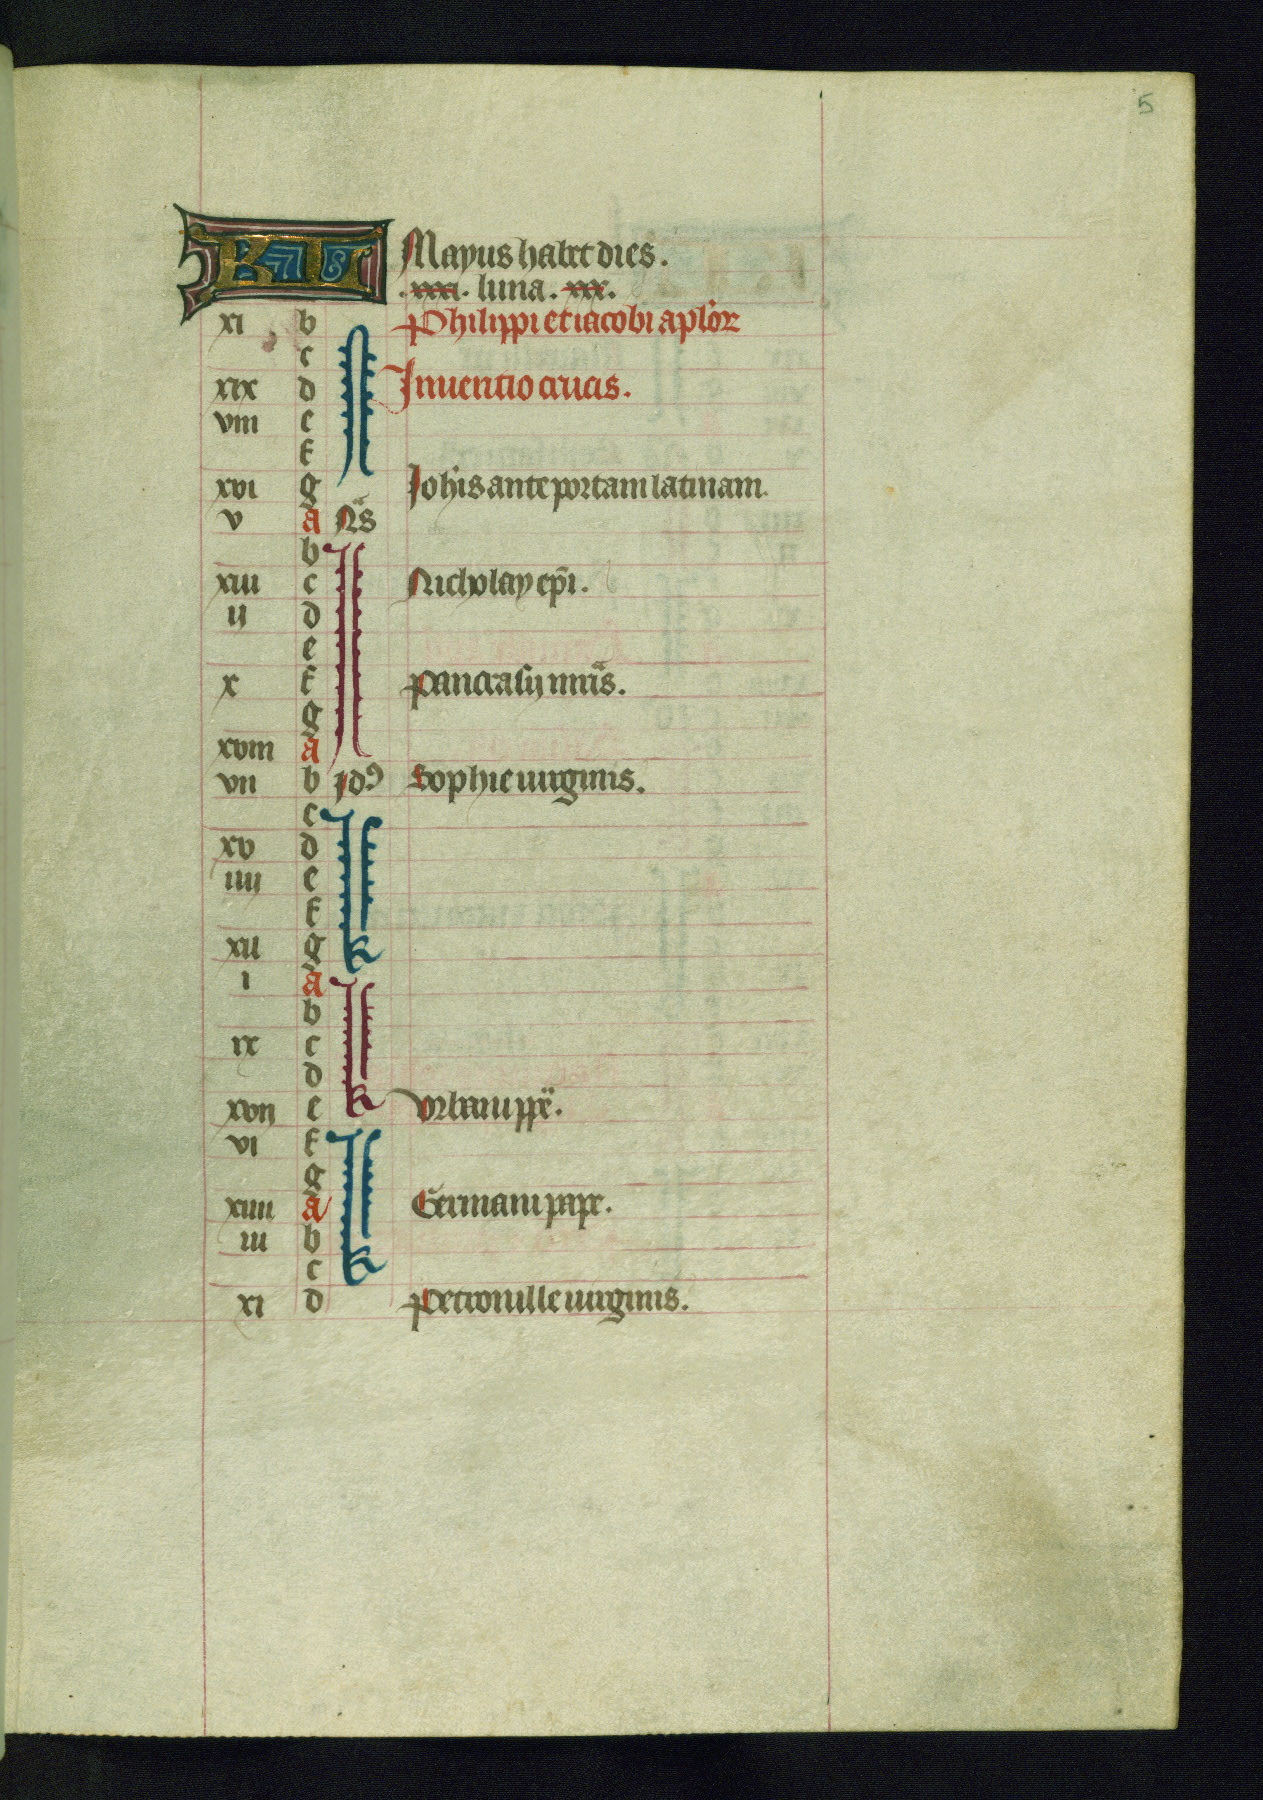 5
KL Mayus habet dies.
.xxxi. luna. xxx.
xi b Philippi et iacobi aplor
c
xix d Inuentio crucis.
viii e
f
xvi g Johis ante portam latinam.
v a Ns
b
xiii c Nicholay epi.
ij d
e
x f Pancrasij mris.
g
xviii a
vii b jd9 Sophie uirginis.
c
xv d
iiij e
f
xii g
i a
b
ix c
d
xvij e Vrbani ppe.
vi f
g
xiiii a Germani pape.
iii b
c
xi d Petronille uirginis.